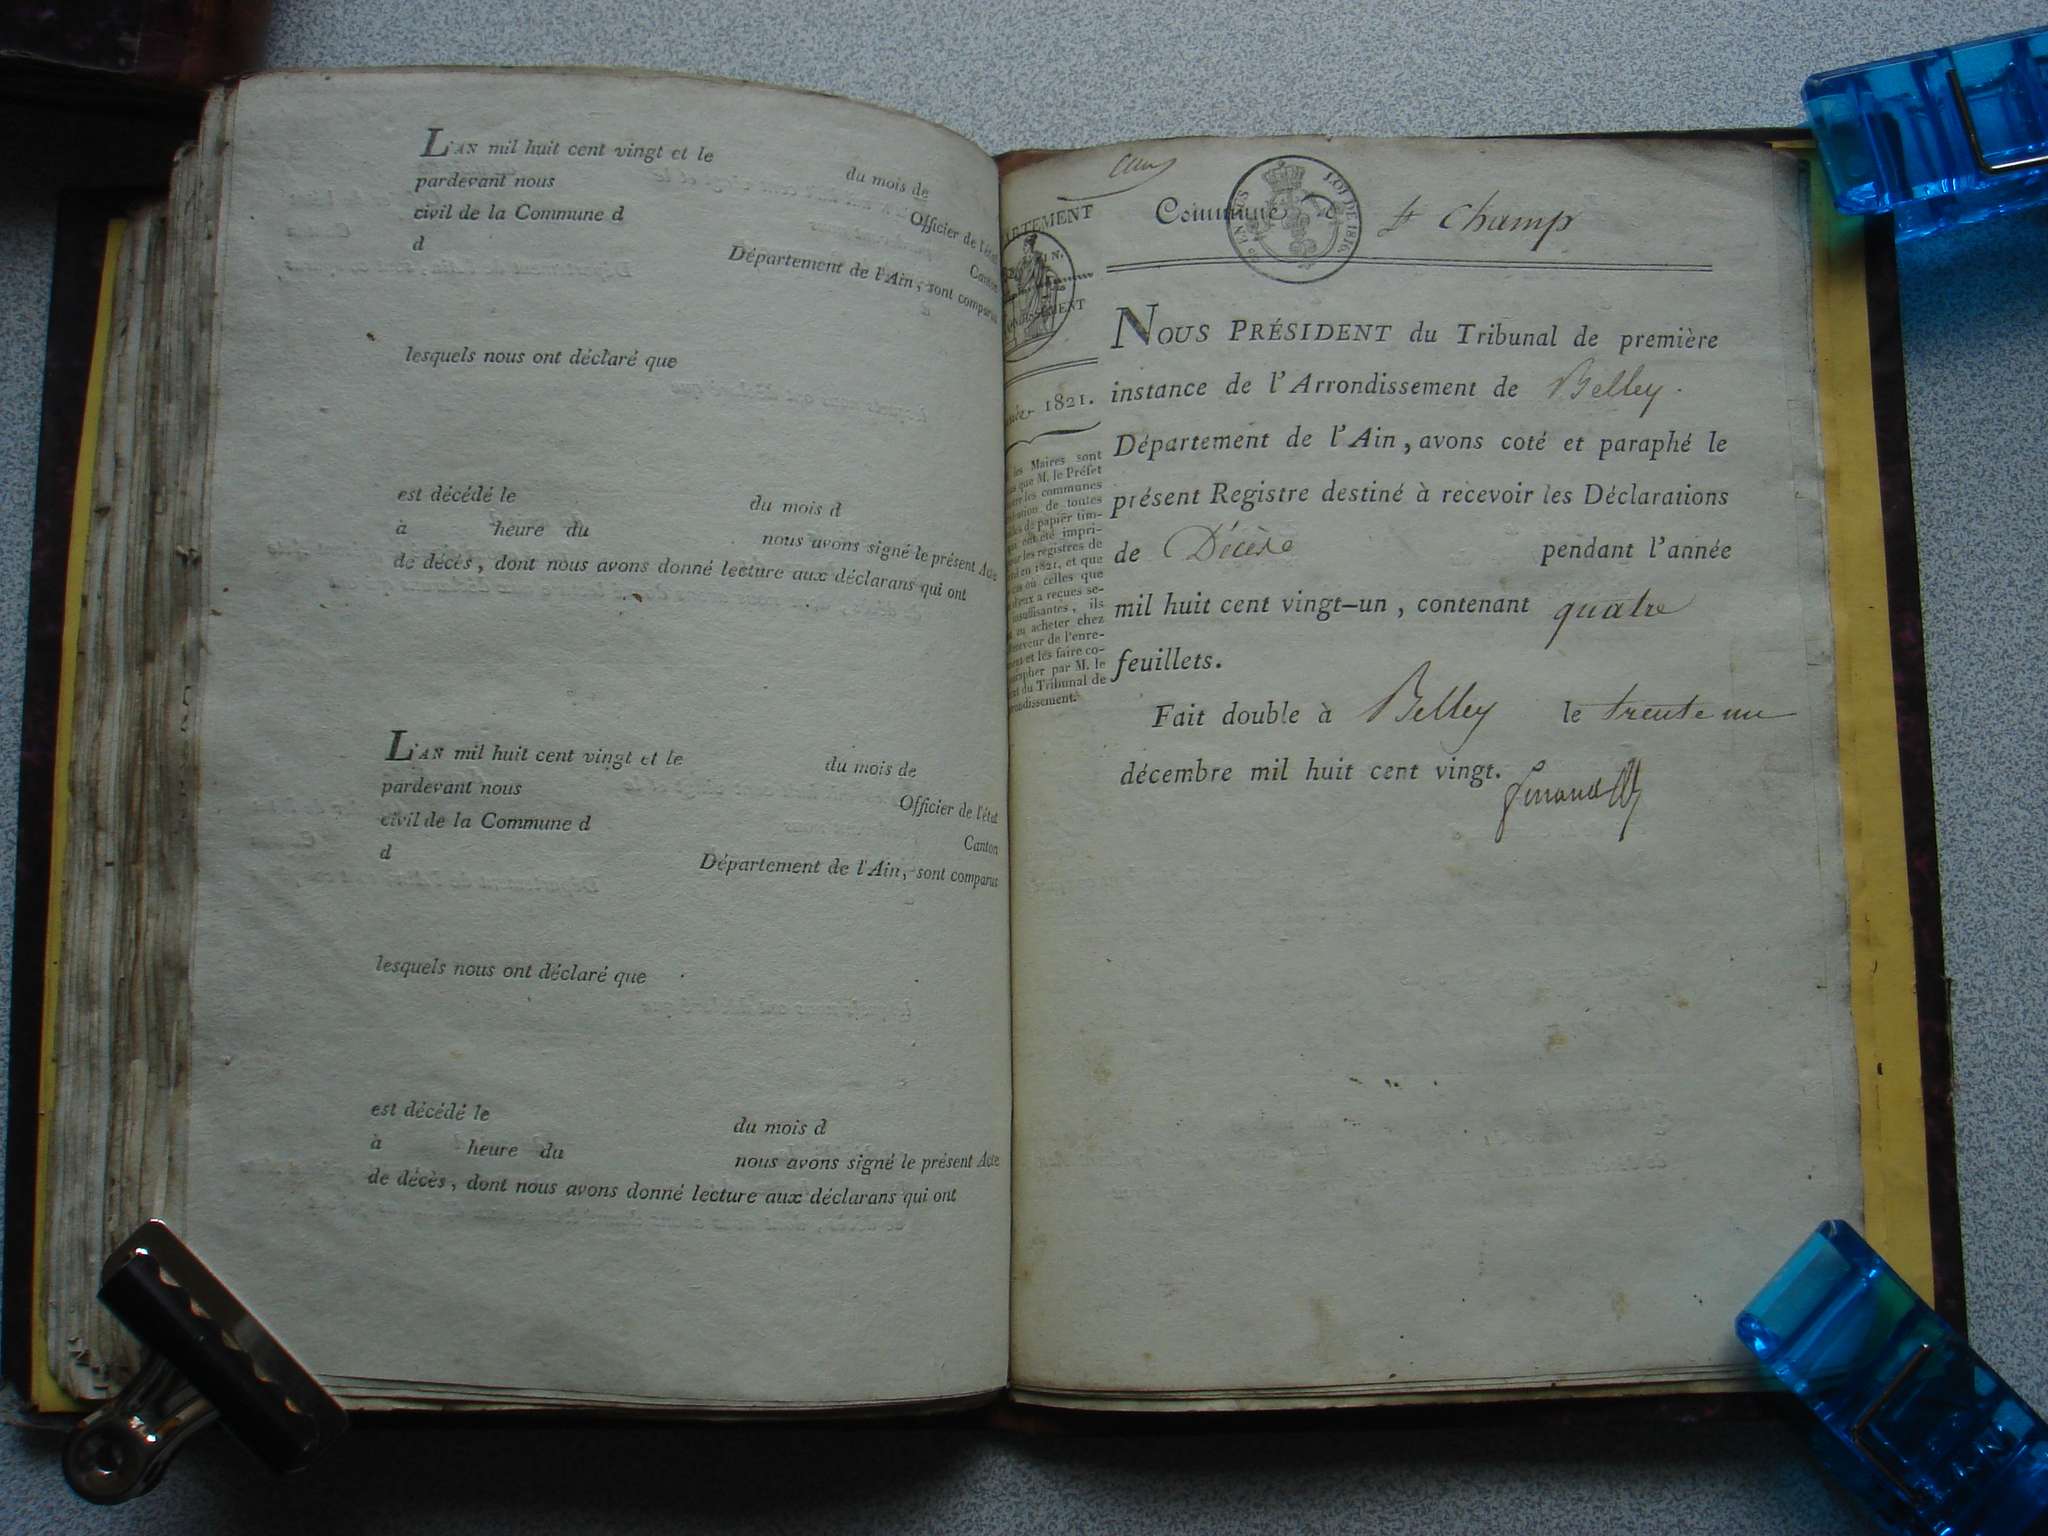 L'AN mil huit cent vingt et le du mois de
pardevant nous Officier de l'état
civil de la Commune d Canton
d Département de l'Ain, sont comparus
lesquels nous ont déclaré que
est décédé le du mois d
à heure du nous avons signé le présent Acte
de décès, dont nous avons donné lecture aux déclarans qui ont
L'AN mil huit cent vingt et le du mois de
pardevant nous Officier de l'état
civil de la Commune d Canton
d Département de l'Ain, sont comparus
lesquels nous ont déclaré que
est décédé le du mois d
à heure du nous avons signé le présent Acte
de décès, dont nous avons donné lecture aux déclarans qui ont
ARTEMENT
IN.
NDISSEMENT
1821.
les Maires sont
que M. le Préfet
les communes
de toutes
de papier tim-
ont été impri-
les registres de
en 1821, et que
où celles que
a reçues se-
insuffisantes, ils
en acheter chez
de l'enre-
et les faire co-
par M. le
du Tribunal de
ondissement.
Commune d St Champ
EN SUS
LOI DE 1816.
NOUS PRÉSIDENT du Tribunal de première
instance de l'Arrondissement de Belley.
Département de l'Ain, avons coté et paraphé le
présent Registre destiné à recevoir les Déclarations
de Décès pendant l'année
mil huit cent vingt-un, contenant quatre
feuillets.
Fait double à Belley le trente un
décembre mil huit cent vingt.